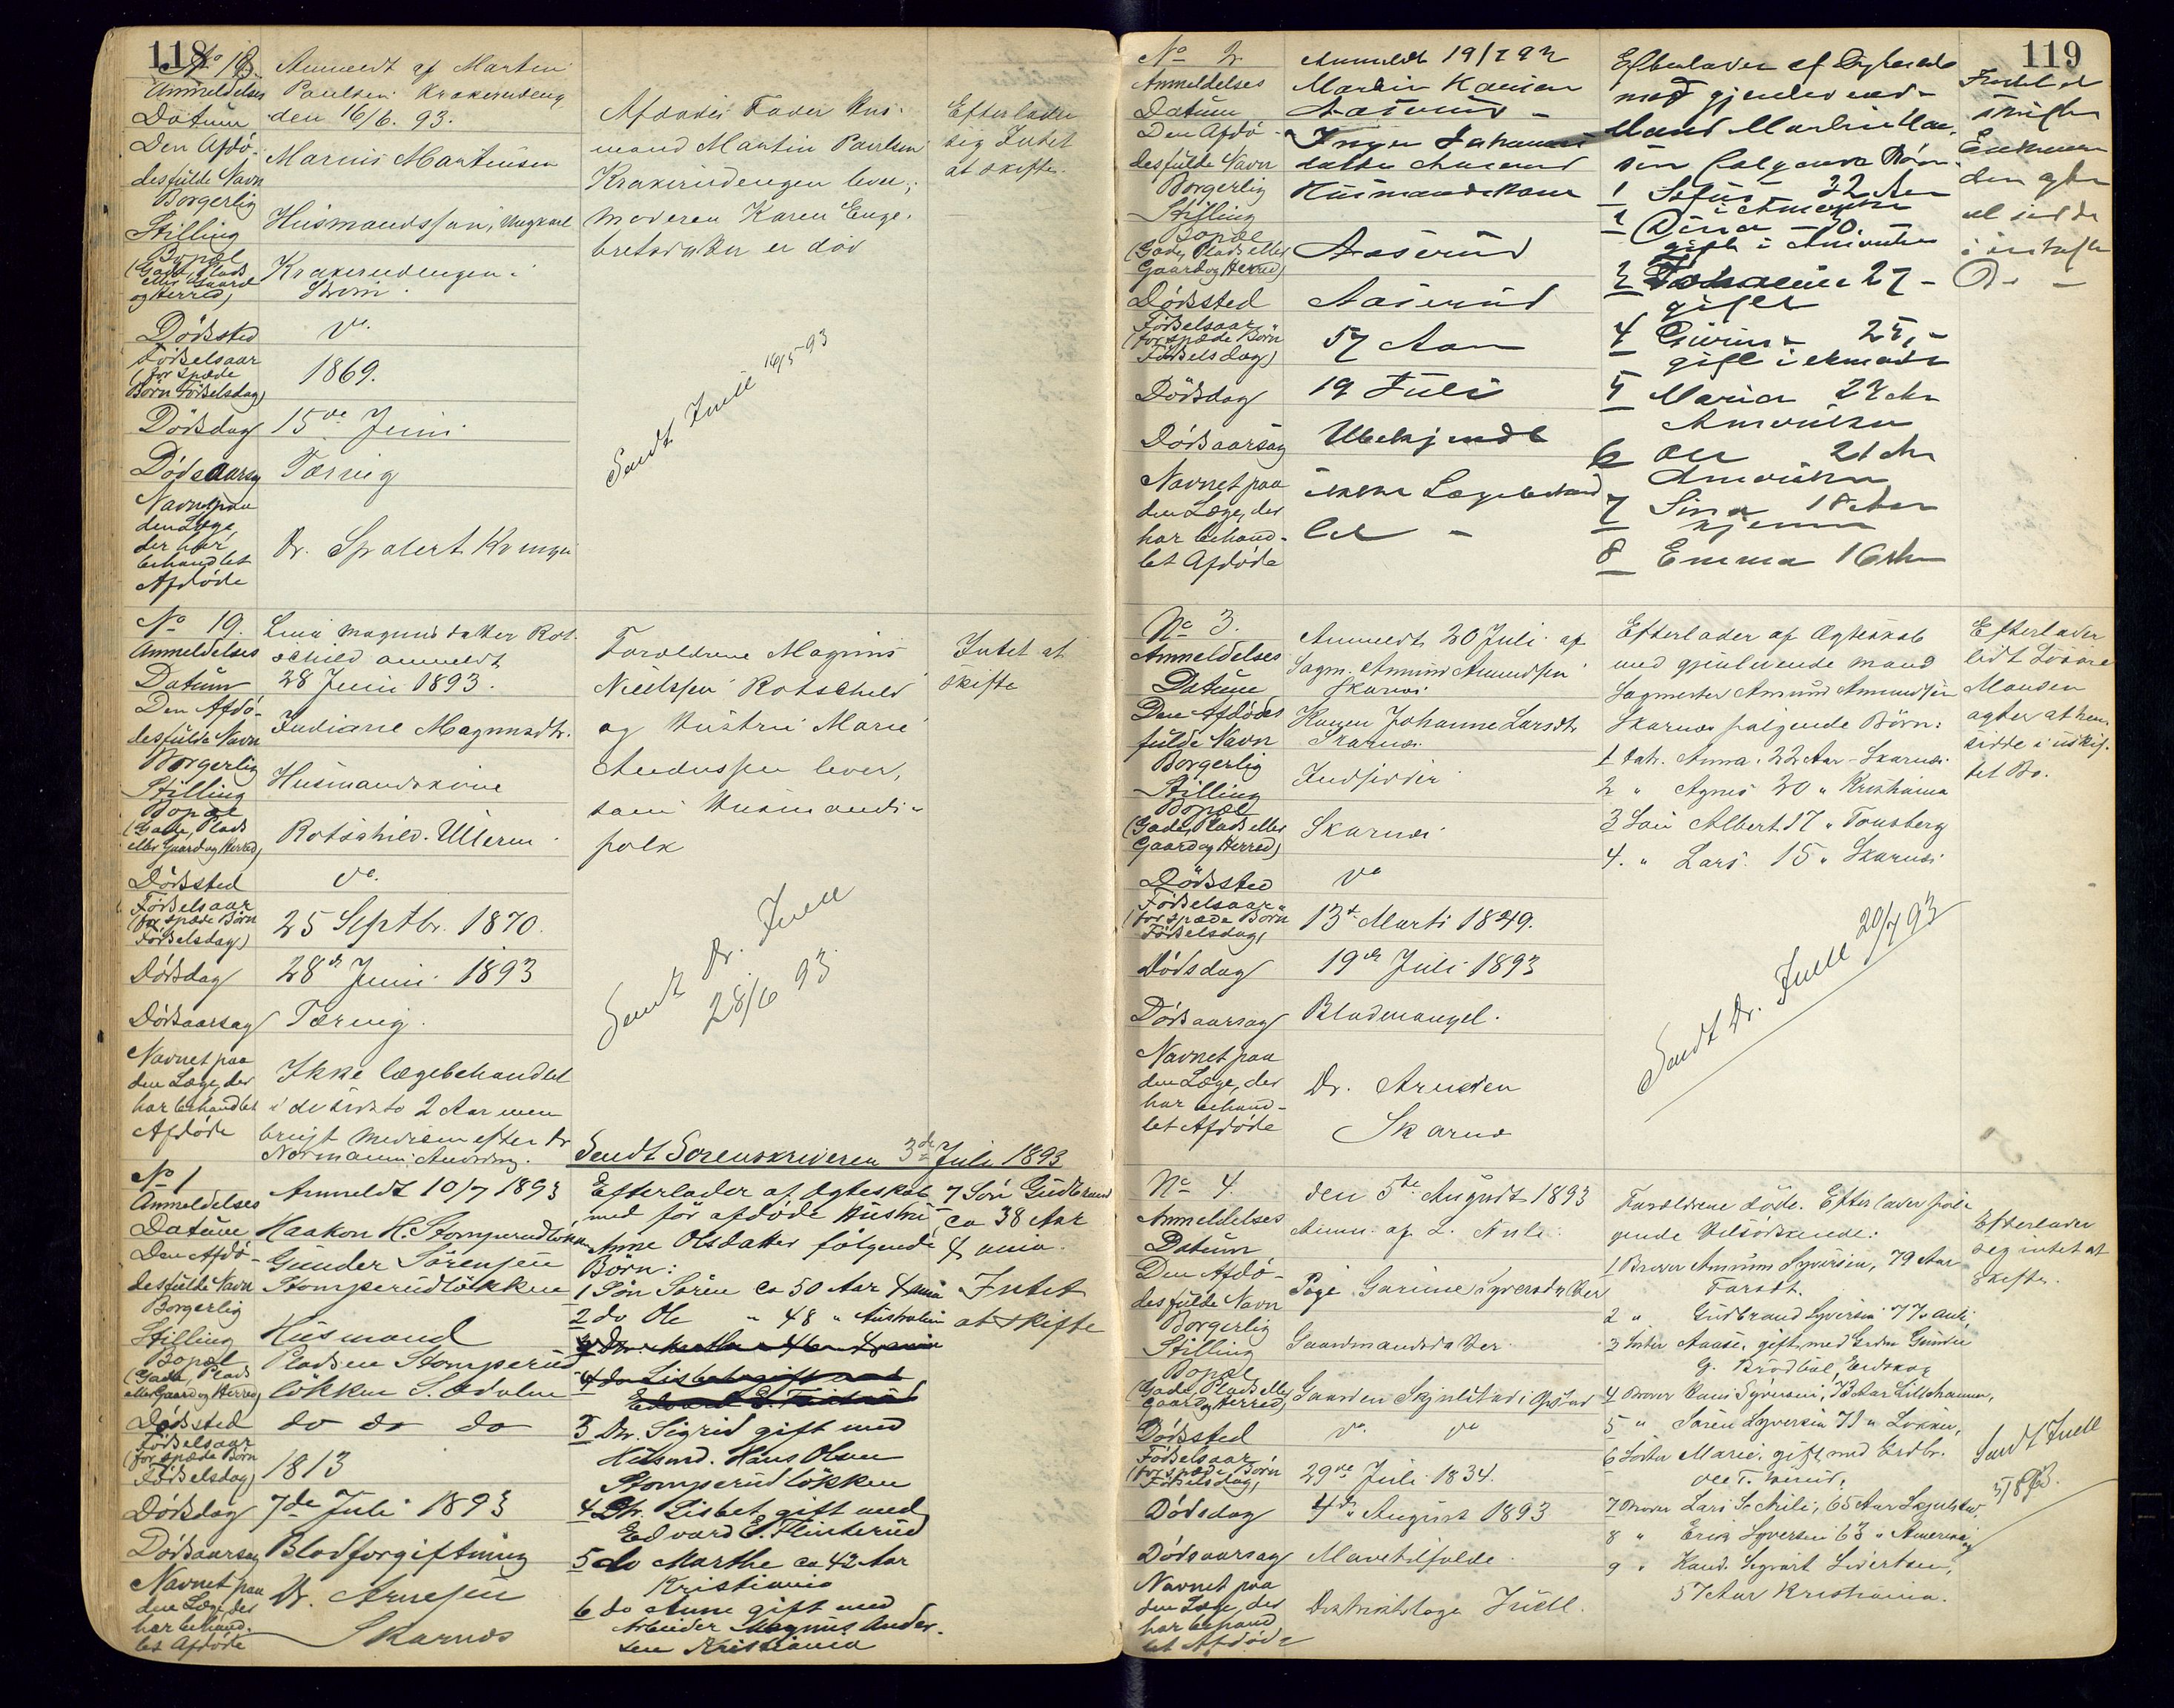 118
No 18.
Anmeldelses
Datum
Anmeldt af Martin
Paulsen Krakerudeng
den 16/6. 93.
Den Afdø-
des fulde Navn
Marius Martinsen
Borgerlig
Stilling
Husmandssøn, Ungkarl
Bopæl
(Gade, Plads
eller Gaard
og Herred)
Krakerudengen i
Strøm.
Dødssted
do.
Fødselsaar
(for spæde
Børn Fødselsdag)
1869.
Dødsdag
15de Juni
Dødsaarsag
Tæring
Navnet paa
den Læge,
der har
behandlet
Afdøde
Dr.
Afdødes Fader Hus-
mand Martin Paulsen
Krakerudengen lever,
moderen Karen Enge-
bretsdatter er død
Sendt Juell 16/5 93
Efterlader
sig Intet
at skifte.
No 19.
Anmeldelses
Datum
Lina Magnusdatter Rot-
schild anmeldt
28 Juni 1893.
Den Afdø-
des fulde Navn
Indiane Magnusdtr.
Borgerlig
Stilling
Husmandskone
Bopæl
(Gade, Plads
eller Gaard og Herred)
Rotschild. Ullern
Dødssted
do.
Fødselsaar
(for spæde Børn
Fødselsdag)
25 Septbr. 1870.
Dødsdag
28de Juni 1893
Dødsaarsag
Tæring.
Navnet paa
den Læge, der
har behandlet
Afdøde
Ikke lægebehandlet
i de sidste 2 Aar men
brugt Medisin efter Dr
Normann
Forældrene Magnus
Nielssen Rotschild
og Hustru Marie
Anderssen lever,
som Husmands-
folk
Sendt Dr. Juell
28/6 93.
Intet at
skifte
Sendt Sorenskriveren 3de Juli 1893
No 1
Anmeldelses
Datum
Anmeldt 10/7 1893
Haakon H. Stomperudløkken
Den Afdø-
des fulde Navn
Gunder Sørensen
Stomperudløkken
Borgerlig
Stilling
Husmand
Bopæl
(Gade, Plads
eller Gaard og Herred)
Pladsen Stomperud
løkken S. Odalen
Dødssted
do do do
Fødselsaar
(for spæde Børn
Fødselsdag)
1813
Dødsdag
7de Juli 1893
Dødsaarsag
Blodforgiftning
Navnet paa
den Læge, der
har behand-
let Afdøde
Dr. Arnesen
Skarnes
Efterlader af Ægteskab
med før afdøde Hustru
Anne Olsdatter følgende
Børn:
1 Søn Søren ca 50 Aar
2 do Ole " 48 " Australien
4 do Lisbet gift med
3 Dtr. Sigrid gift med
Husmd. Hans Olsen
Stomperudløkken
4 Dtr. Lisbet gift med
Edvard E. Flinterud
5 do Marthe ca 42 Aar
Kristiania
6 do Anne gift med
Arbeider Magnus Ander-
sen Kristiania
7 Søn Gudbrand
ca 38 Aar
Intet
at skifte
119
No 2
Anmeldelses
Datum
Anmeldt 19/7 93
Martin
Aaserud
Den Afdø-
des fulde Navn
Inger Johannes
datter Aaserud
Borgerlig
Stilling
Husmandskone
Bopæl
(Gade, Plads eller
Gaard og Herred)
Aaserud
Dødssted
Aaserud
Fødselsaar
(for spæde Børn
Fødselsdag)
57 Aar
Dødsdag
19 Juli
Dødsaarsag
Ubekjendt
Navnet paa
den Læge, der
har behand-
let Afdøde
ikke Lægebehand
let -
Efterlader af Egteskab
med gjenlevende
Mand Martin
følgende Børn
1 32 Aar
i Amerika
2 Dina - 30 -
gift i Amerika
3 Johanne 27 -
gift
4 25 -
gift i
5 Maria 22 Aar
Amerika
6 Ole 21 Aar
Amerika
7 Sina 18 Aar
hjemme
8 Emma 16 Aar
Intet at
skifte
Enkeman
den agter
at sidde
i uskiftet
Bo -
No 3.
Anmeldelses
Datum
Anmeldt 20 Juli af
Sagm. Amund Amundsen
Skarnes
Den Afdødes
fulde Navn
Karen Johanne Larsdtr.
Skarnes.
Borgerlig
Stilling
Indsidder
Bopæl
(Gade, Plads eller
Gaard og Herred)
Skarnes
Dødssted
do
Fødselsaar
(for spæde Børn
Fødselsdag)
13de Marts 1849.
Dødsdag
19de Juli 1893
Dødsaarsag
Blodmangel.
Navnet paa
den Læge, der
har behand-
let Afdøde
Dr. Arnesen
Skarnes
Efterlader af Ægteskab
med gjenlevende mand
Sagmester Amund Amundsen
Skarnes følgende Børn:
1 Datr. Anna. 22 Aar - Skarnes
2 " Agnes 20 " Kristiania
3 Søn Albert 17 " Tønsberg
4. " Lars. 15 " Skarnes
Sendt Dr. Juell 20/7 93
Efterlader
lidt Løsøre
Manden
agter at hen-
sidde i uskif-
tet Bo.
No 4.
Anmeldelses
Datum
den 5te August 1893
Anm. af L. Nuli
Den Afdø-
des fulde Navn
Pige Gurine Syversdatter
Borgerlig
Stilling
Gaardmandsdatter
Bopæl
(Gade, Plads eller
Gaard og Herred)
Gaarden Skjulstad i Opstad
Dødssted
do do
Fødselsaar
(for spæde Børn
Fødselsdag)
29de Juli 1834.
Dødsdag
4de August 1893
Dødsaarsag
Mavetilfælde.
Navnet paa
den Læge, der
har behand-
let Afdøde
Distriktslæge Juell.
Forældrene døde. Efterlader føl-
gende Helsødskende:
1 Broder Amund Syversen, 79 Aar
2 " Gudbrand Syversen 77
3 Søster Aaase, gift med
G. Brødbøl, Eidskog
4 Broder Hans Syversen, 73 Aar Lillehammer,
5 " Søren Syversen 71 "
6 Søster Marie, gift med Grdbr.
Ole T.
7 Broder Lars S. 65 Aar Skjulstad,
8 " Erik Syversen 63 " Amerika
9 " Sivertsen,
57 Aar Kristiania.
Efterlader
sig intet at
skifte.
Sendt Juell
5/8 93.